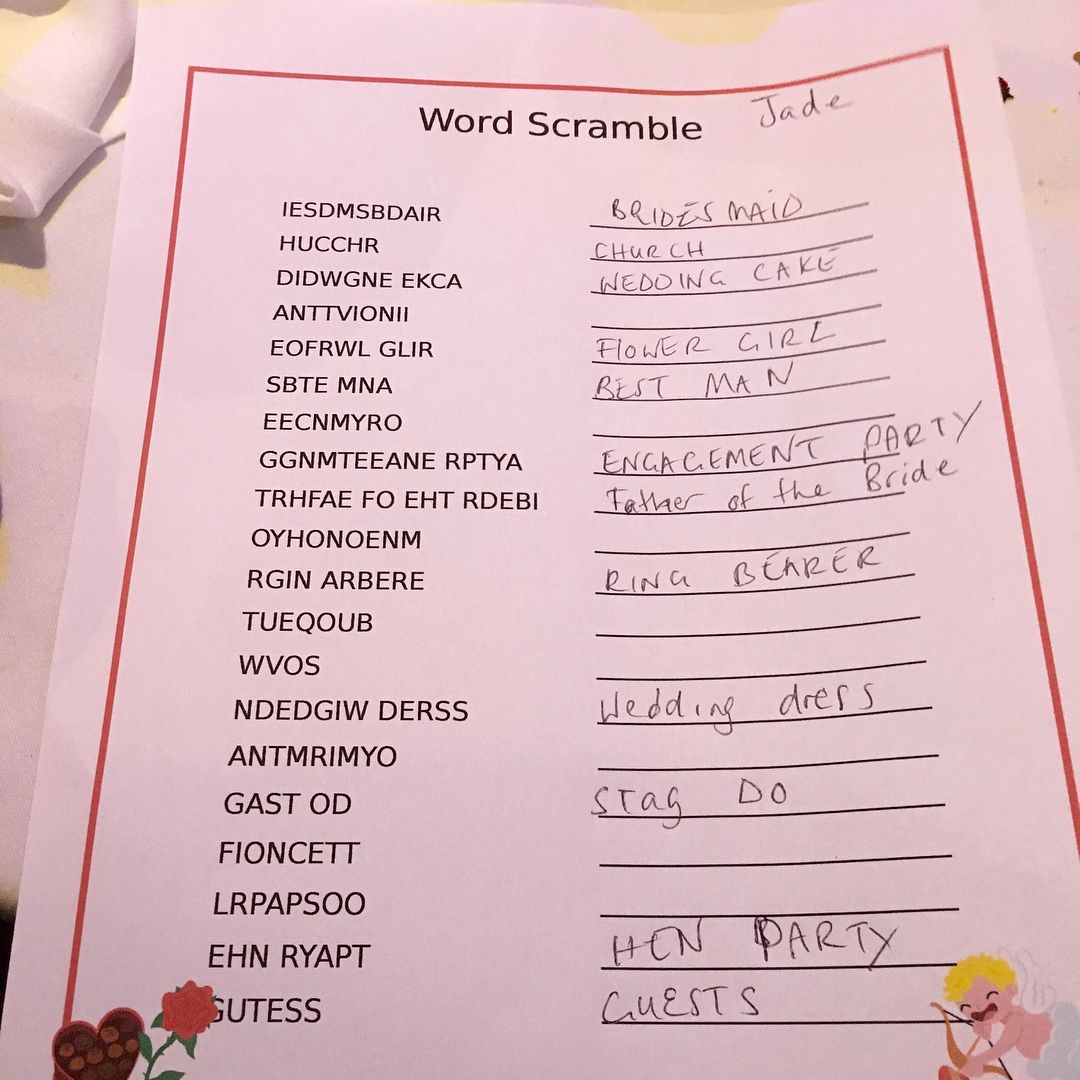 Word Scramble Jade
IESDMSBDAIR BRIDESMAID
HUCCHR CHURCH
DIDWGNE EKCA WEDDING CAKE
ANTTVIONII
EOFRWL GLIR FlOWER GIRL
SBTE MNA BEST MAN
EECNMYRO
GGNMTEEANE RPTYA ENGAGEMENT PARTY
TRHFAE FO EHT RDEBI Father of the Bride
OYHONOENM
RGIN ARBERE RING BEARER
TUEQOUB
WVOS
NDEDGIW DERSS Wedding dress
ANTMRIMYO
GAST OD STag DO
FIONCETT
LRPAPSOO
EHN RYAPT HEN PARTY
GUTESS GUESTS